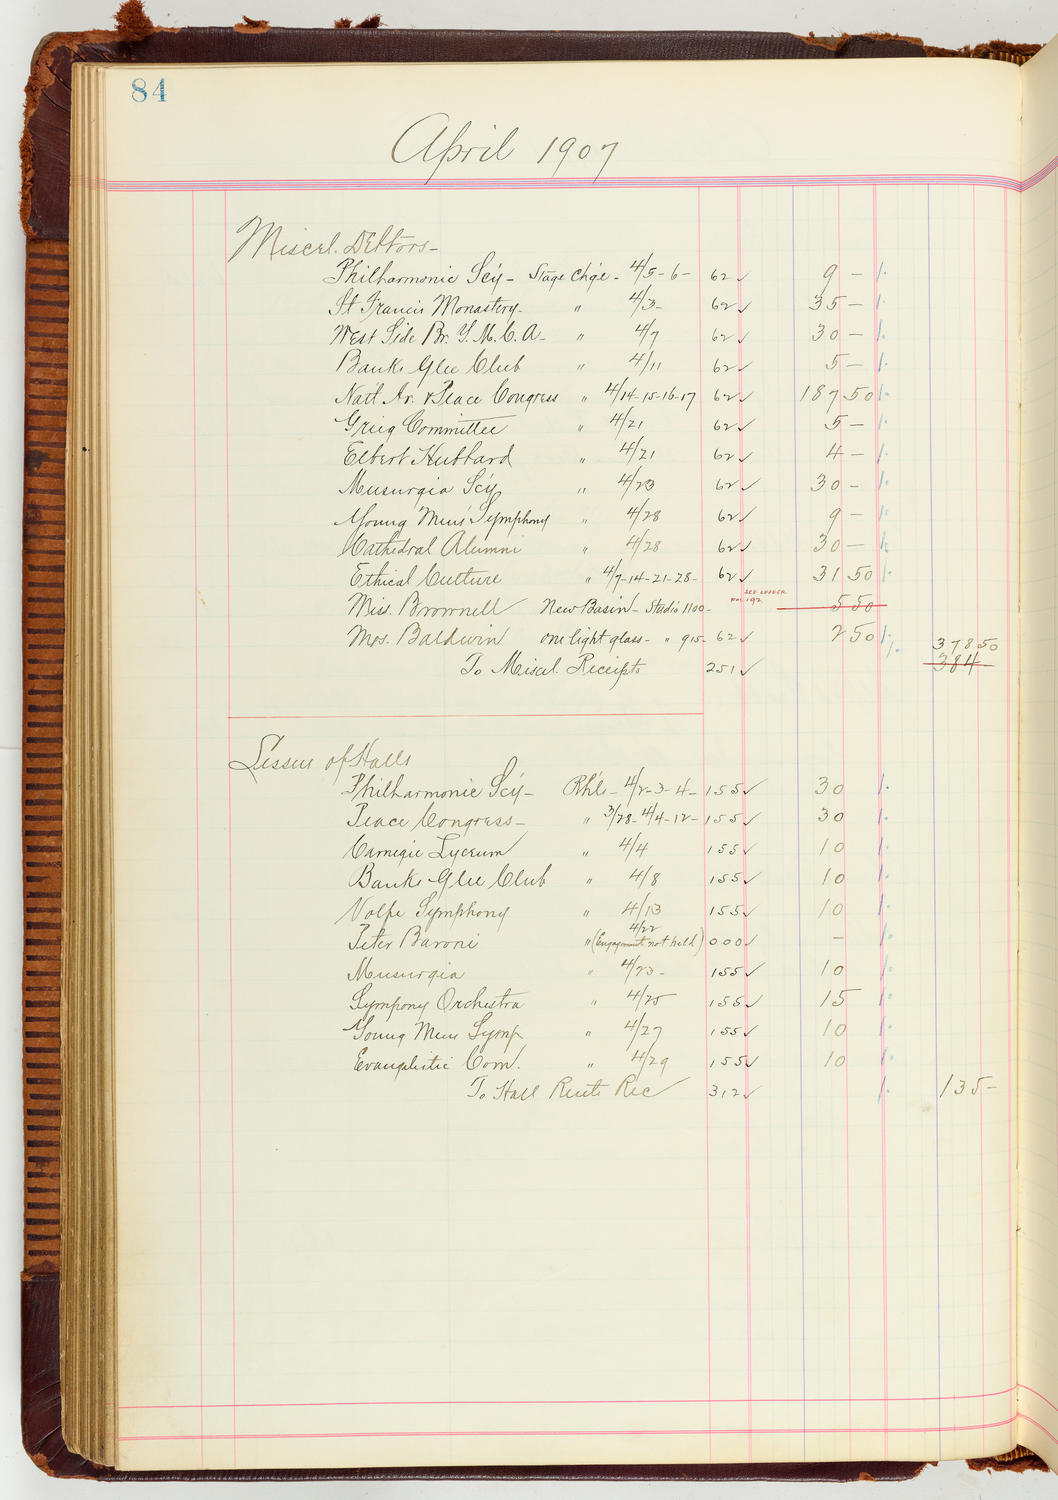 84
April 1907
Miscel. Debtors-
Philharmonic Sc'y - Stage Ch'g'e - 4/5-6- 62 ✓ 9 -
St Francis Monastery- " 4/3- 62 ✓ 35 -
West Side Br. Y.M.C.A- " 4/7 62 ✓ 30 -
Banks Glee Club " 4/11 62 ✓ 5 -
Nat'l Ar. & Peace Congress " 4/14-15-16-17 62 ✓ 187 50
Grieg Committee " 4/21 62 ✓ 5 -
Elbert Hubbard " 4/21 62 ✓ 4 -
Musurgia Sc'y " 4/23 62 ✓ 30 -
Young Men's Symphony " 4/28 62 ✓ 9 -
Cathedral Alumni " 4/28 62 ✓ 30 -
Ethical Culture " 4/7-14-21-28- 62 ✓ 31 50
Miss. Brownell New Basin - Studio 1100- SEE LEDGER FOL. 192 5 50
Mrs. Baldwin one light glass - " 915- 62 ✓ 2 50 378 50
To Miscel. Receipts 251 ✓ 384
Lessees of Halls
Philharmonic Sc'y - Rh'ls - 4/2-3-4- 155 ✓ 30
Peace Congress - " 3/28-4/4-12- 155 ✓ 30
Carnegie Lyceum " 4/4 155 ✓ 10
Banks Glee Club " 4/8 155 ✓ 10
Volpe Symphony " 4/13 155 ✓ 10
Peter Baroni " 4/22 (Engagement not held) 000 ✓ -
Musurgia " 4/23- 155 ✓ 10
Sympony Orchestra " 4/25 155 ✓ 15
Young Mens Symp " 4/27 155 ✓ 10
Evangelistic Com. " 4/29 155 ✓ 10
To Hall Rents Rec 312 ✓ 135 -